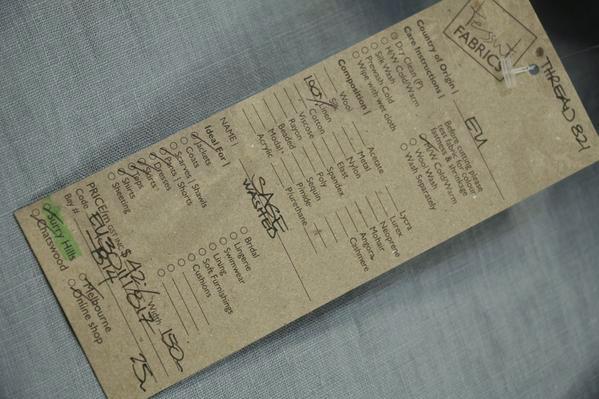 Tessuti
FABRICS
THREAD 821
Country of Origin | EU
Care Instructions |
Dry Clean (P)
H/W Cold/Warm
Silk Wash
Prewash Cold
Wipe with wet cloth
Before caring please
test fabric for colour
fastness & shrinkage
M/W Cold/Warm
Wool Wash
Wash Separately
Composition |
Silk
Wool
100% Linen
Cotton
Viscose
Rayon
Beaded
Modal
Acrylic
Acetate
Metal
Nylon
Elast
Spandex
Poly
Sequin
Pinride
Plurethane
Lycra
Lurex
Neoprene
Mohair
Angora
Cashmere
NAME | SAGE
WASHED
Ideal For |
Jackets
Coats
Scarves | Shawls
Pants | Shorts
Dresses
Skirts
Tops
Shirts
Sheeting
Bridal
Lingerie
Swimwear
Lining
Soft Furnishings
Cushions
PRICE/m GST INC $
Width 150
Code
Bay #
Surry Hills
Chatswood
Melbourne
Online shop